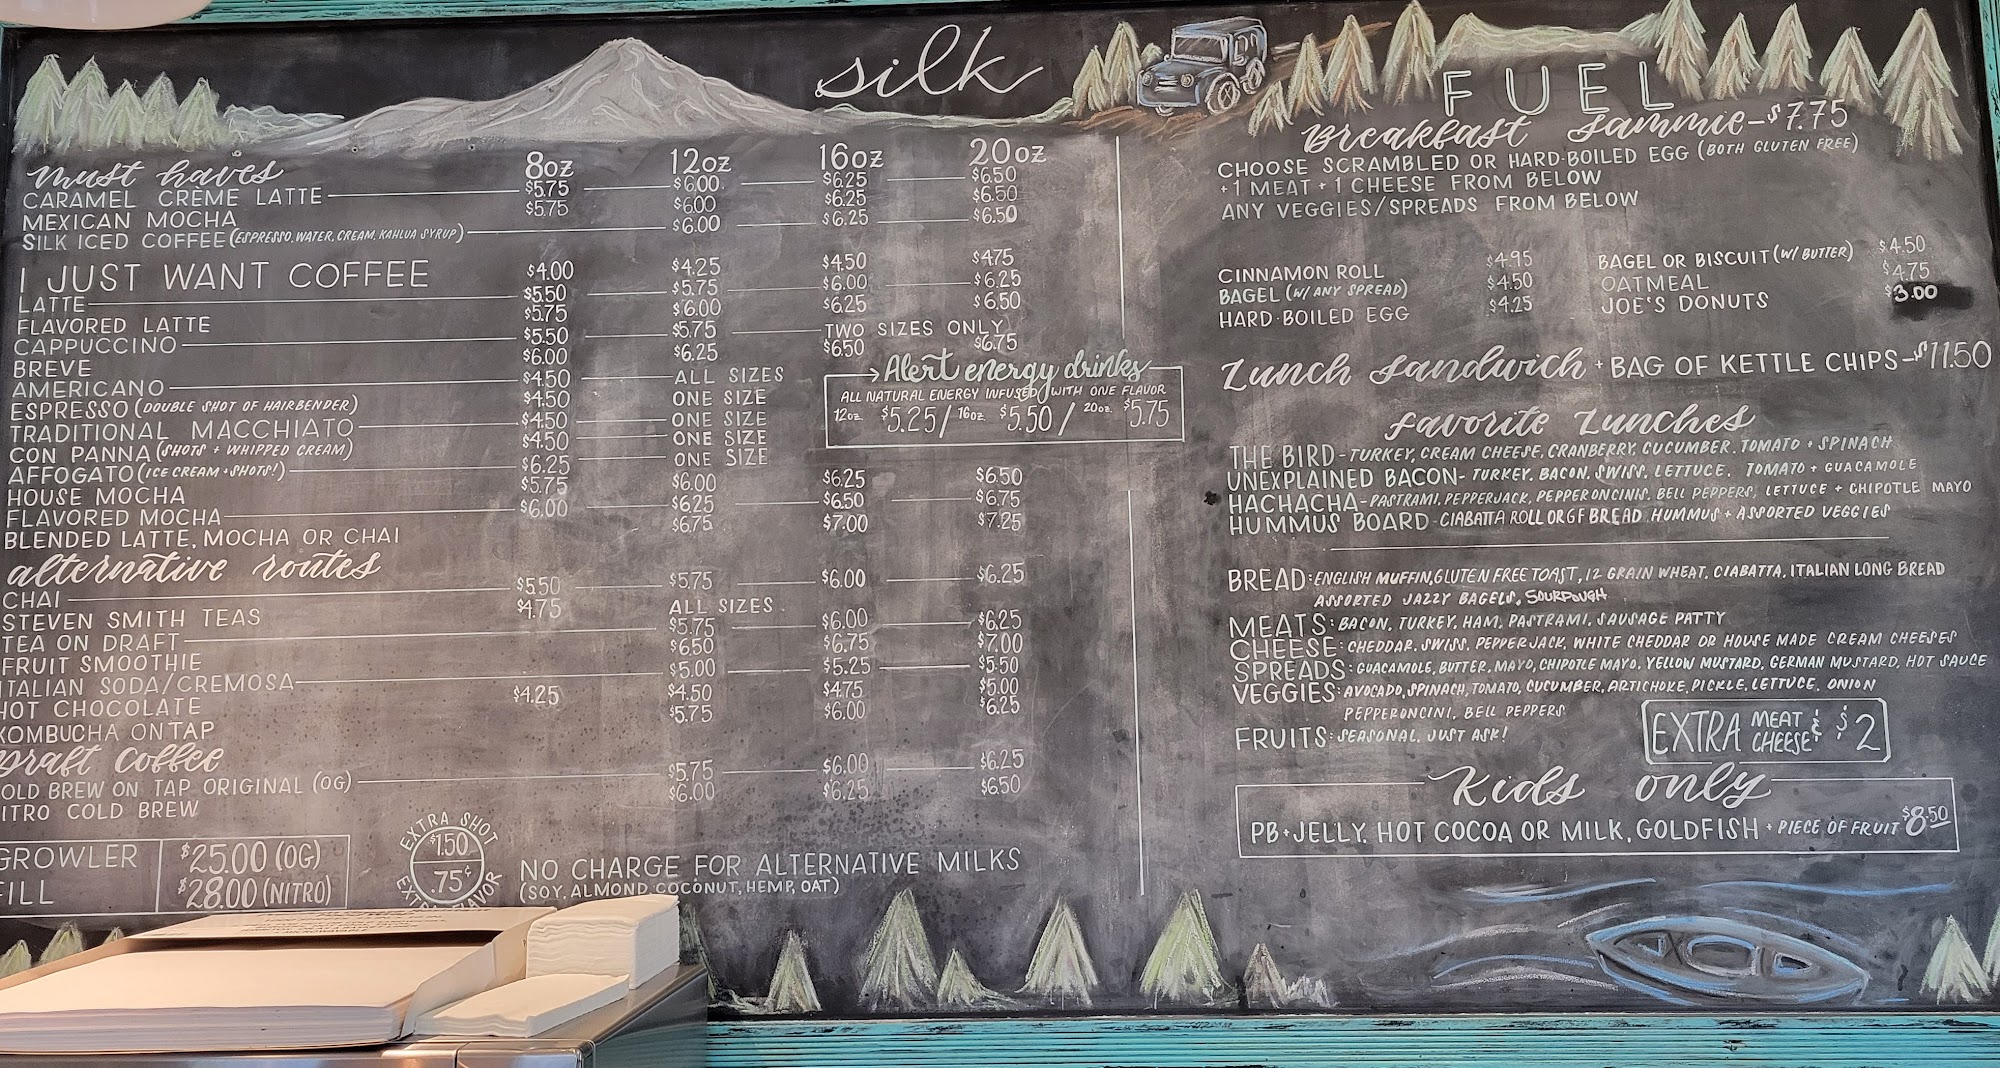 silk
must haves 8oz 12oz 16oz 20oz
CARAMEL CRÈME LATTE $5.75 $6.00 $6.25 $6.50
MEXICAN MOCHA $5.75 $6.00 $6.25 $6.50
SILK ICED COFFEE (ESPRESSO, WATER, CREAM, KAHLUA SYRUP) $6.00 $6.25 $6.50
I JUST WANT COFFEE $4.00 $4.25 $4.50 $4.75
LATTE $5.50 $5.75 $6.00 $6.25
FLAVORED LATTE $5.75 $6.00 $6.25 $6.50
CAPPUCCINO $5.50 $5.75 TWO SIZES ONLY
BREVE $6.00 $6.25 $6.50 $6.75
AMERICANO $4.50 ALL SIZES
ESPRESSO (DOUBLE SHOT OF HAIRBENDER) $4.50 ONE SIZE
TRADITIONAL MACCHIATO $4.50 ONE SIZE
CON PANNA (SHOTS + WHIPPED CREAM) $4.50 ONE SIZE
AFFOGATO (ICE CREAM + SHOTS!) $6.25 ONE SIZE
HOUSE MOCHA $5.75 $6.00 $6.25 $6.50
FLAVORED MOCHA $6.00 $6.25 $6.50 $6.75
BLENDED LATTE, MOCHA OR CHAI $6.75 $7.00 $7.25
Alert energy drinks
ALL NATURAL ENERGY INFUSED WITH ONE FLAVOR
12oz $5.25 / 16oz $5.50 / 20oz $5.75
alternative routes
CHAI $5.50 $5.75 $6.00 $6.25
STEVEN SMITH TEAS $4.75 ALL SIZES
TEA ON DRAFT $5.75 $6.00 $6.25
FRUIT SMOOTHIE $6.50 $6.75 $7.00
ITALIAN SODA/CREMOSA $5.00 $5.25 $5.50
HOT CHOCOLATE $4.25 $4.50 $4.75 $5.00
KOMBUCHA ON TAP $5.75 $6.00 $6.25
Draft Coffee
OLD BREW ON TAP ORIGINAL (OG) $5.75 $6.00 $6.25
ITRO COLD BREW $6.00 $6.25 $6.50
GROWLER $25.00 (OG)
FILL $28.00 (NITRO)
EXTRA SHOT
$1.50
.75¢
NO CHARGE FOR ALTERNATIVE MILKS
(SOY, ALMOND, COCONUT, HEMP, OAT)
FUEL
Breakfast Sammie - $7.75
CHOOSE SCRAMBLED OR HARD-BOILED EGG (BOTH GLUTEN FREE)
+ 1 MEAT + 1 CHEESE FROM BELOW
ANY VEGGIES/SPREADS FROM BELOW
CINNAMON ROLL $4.95 BAGEL OR BISCUIT (W/ BUTTER) $4.50
BAGEL (W/ ANY SPREAD) $4.50 OATMEAL $4.75
HARD-BOILED EGG $4.25 JOE'S DONUTS $3.00
Lunch Sandwich + BAG OF KETTLE CHIPS - $11.50
Favorite Lunches
THE BIRD - TURKEY, CREAM CHEESE, CRANBERRY, CUCUMBER, TOMATO + SPINACH
UNEXPLAINED BACON - TURKEY, BACON, SWISS, LETTUCE, TOMATO + GUACAMOLE
HACHACHA - PASTRAMI, PEPPERJACK, PEPPERONCINIS, BELL PEPPERS, LETTUCE + CHIPOTLE MAYO
HUMMUS BOARD - CIABATTA ROLL OR GF BREAD, HUMMUS + ASSORTED VEGGIES
BREAD: ENGLISH MUFFIN, GLUTEN FREE TOAST, 12 GRAIN WHEAT, CIABATTA, ITALIAN LONG BREAD
ASSORTED JAZZY BAGELS, SOURDOUGH
MEATS: BACON, TURKEY, HAM, PASTRAMI, SAUSAGE PATTY
CHEESE: CHEDDAR, SWISS, PEPPERJACK, WHITE CHEDDAR OR HOUSE MADE CREAM CHEESES
SPREADS: GUACAMOLE, BUTTER, MAYO, CHIPOTLE MAYO, YELLOW MUSTARD, GERMAN MUSTARD, HOT SAUCE
VEGGIES: AVOCADO, SPINACH, TOMATO, CUCUMBER, ARTICHOKE, PICKLE, LETTUCE, ONION
PEPPERONCINI, BELL PEPPERS
FRUITS: SEASONAL, JUST ASK!
EXTRA MEAT & CHEESE: $2
Kids only
PB + JELLY, HOT COCOA OR MILK, GOLDFISH + PIECE OF FRUIT $8.50